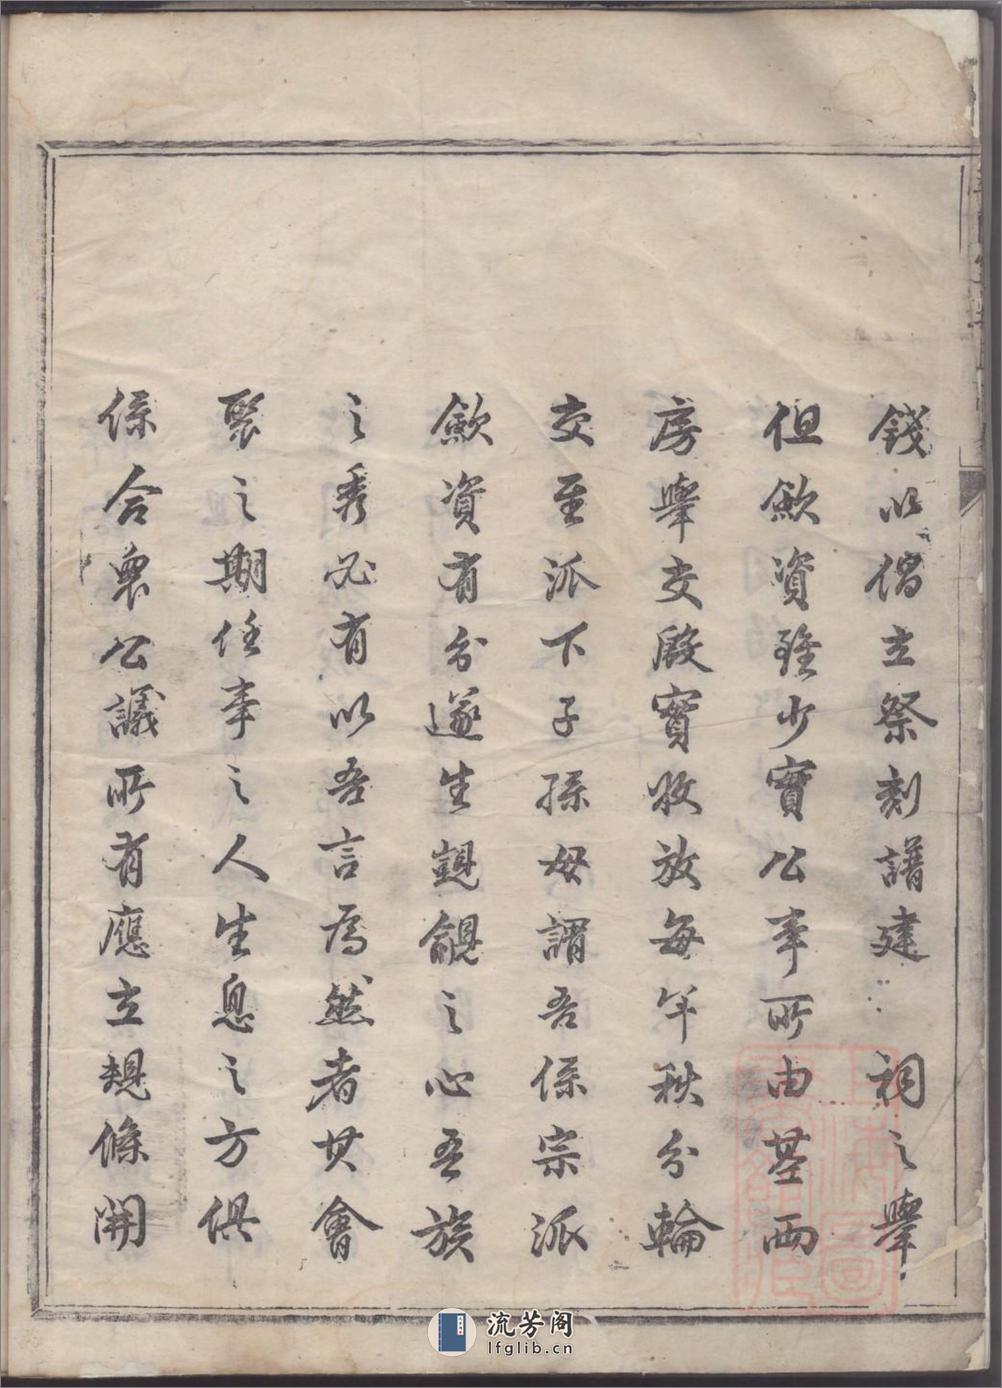 錢以倡立祭刻譜建祠之舉
但歛資雖少實公事所由基兩
房舉交殷實收放每年秋分輪
交至派下子孫毋謂吾係宗派
歛資有分遂生覬覦之心吾族
之秀必有以吾言為然者其會
聚之期任事之人生息之方俱
係合眾公議所有應立規條開
流芳阁
lfglib.cn